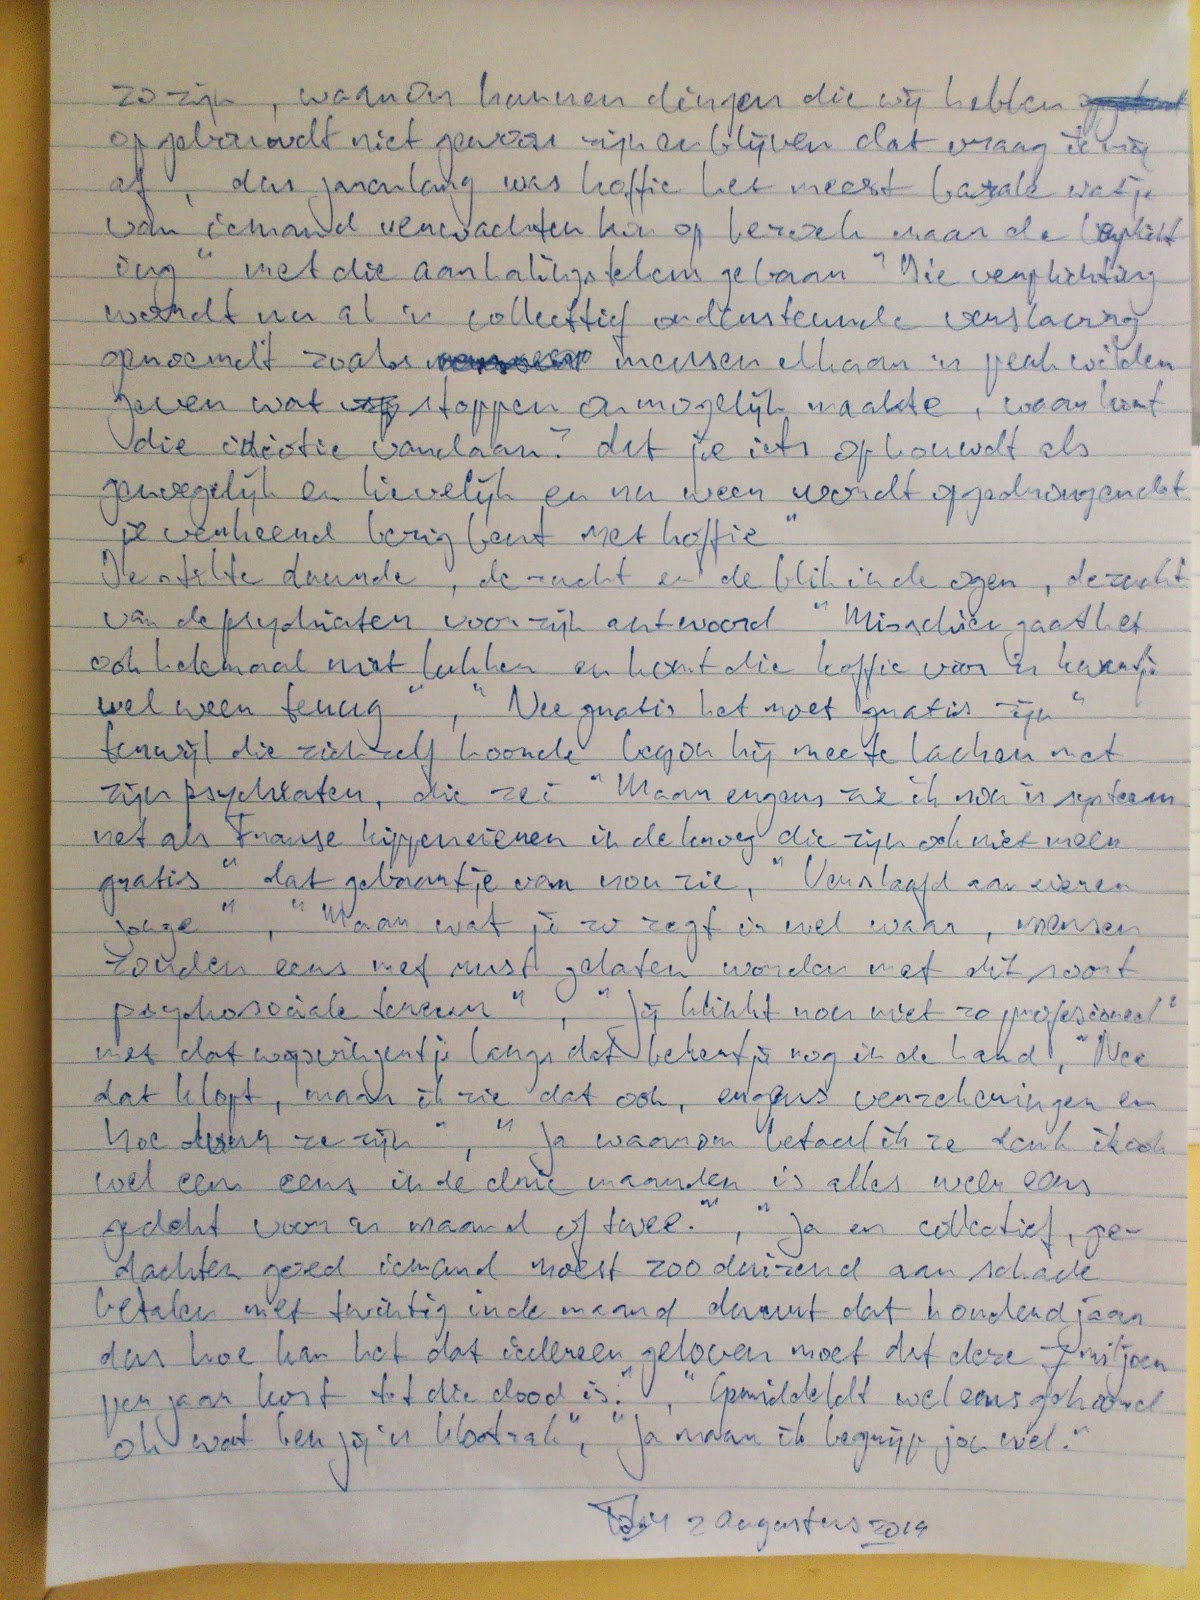 zo zijn, waarom kunnen dingen die wij hebben
opgebouwdt niet gewoon zijn en blijven dat vraag ik mij
af, dus jarenlang was koffie het meest basale wat je
van iemand verwachten kon op bezoek maar de "verplicht
ing" met die aanhalingstekens gebaar "Die verplichting
wordt nu al 'n collectief ondersteunde verslaving
genoemdt zoals mensen elkaar 'n peuk wilden
geven wat stoppen onmogelijk maakte, waar komt
die idiotie vandaan? dat je iets ophouwdt als
en lievelijk en nu weer wordt opgedrongen dat
je verkeerd bezig bent met koffie"
De stilte duurde, de zucht en de blik in de ogen, de zucht
van de psychiater voor zijn antwoord "Misschien gaat het
ook helemaal niet lukken en komt die koffie voor 'n kwartje
wel weer terug", "Nee gratis het moet gratis zijn"
terwijl die zichzelf hoorde begon hij mee te lachen met
zijn psychiater, die zei "Maar ergens zie ik nou 'n systeem
net als Franse kippeneieren in de kroeg die zijn ook niet meer
gratis" dat gebaartje van nou zie, "Verslaafd aan eieren
", "Maar wat je zo zegt is wel waar, mensen
zouden eens met rust gelaten worden met dit soort
psychosociale terreur", "Jij klinkt nou niet zo profesioneel"
met dat langs dat bekertje nog in de hand, "Nee
dat klopt, maar ik zie dat ook, ergens verzekeringen en
hoe duur ze zijn", "Ja waarom betaal ik ze denk ik ook
wel eens eens in de drie maanden is alles weer eens
gedekt voor 'n maand of twee.", "Ja en collectief, ge-
dachten goed iemand moest zooduizend aan schade
betalen met twintig in de maand duurt dat honderd jaar
dus hoe kan het dat iedereen geloven moet dat deze 7 miljoen
per jaar kost tot die dood is.", "Gemiddeldt wel eens gehoord
oh wat ben jij 'n klootzak", "Ja maar ik begrijp jou wel."
2 augustus 2019